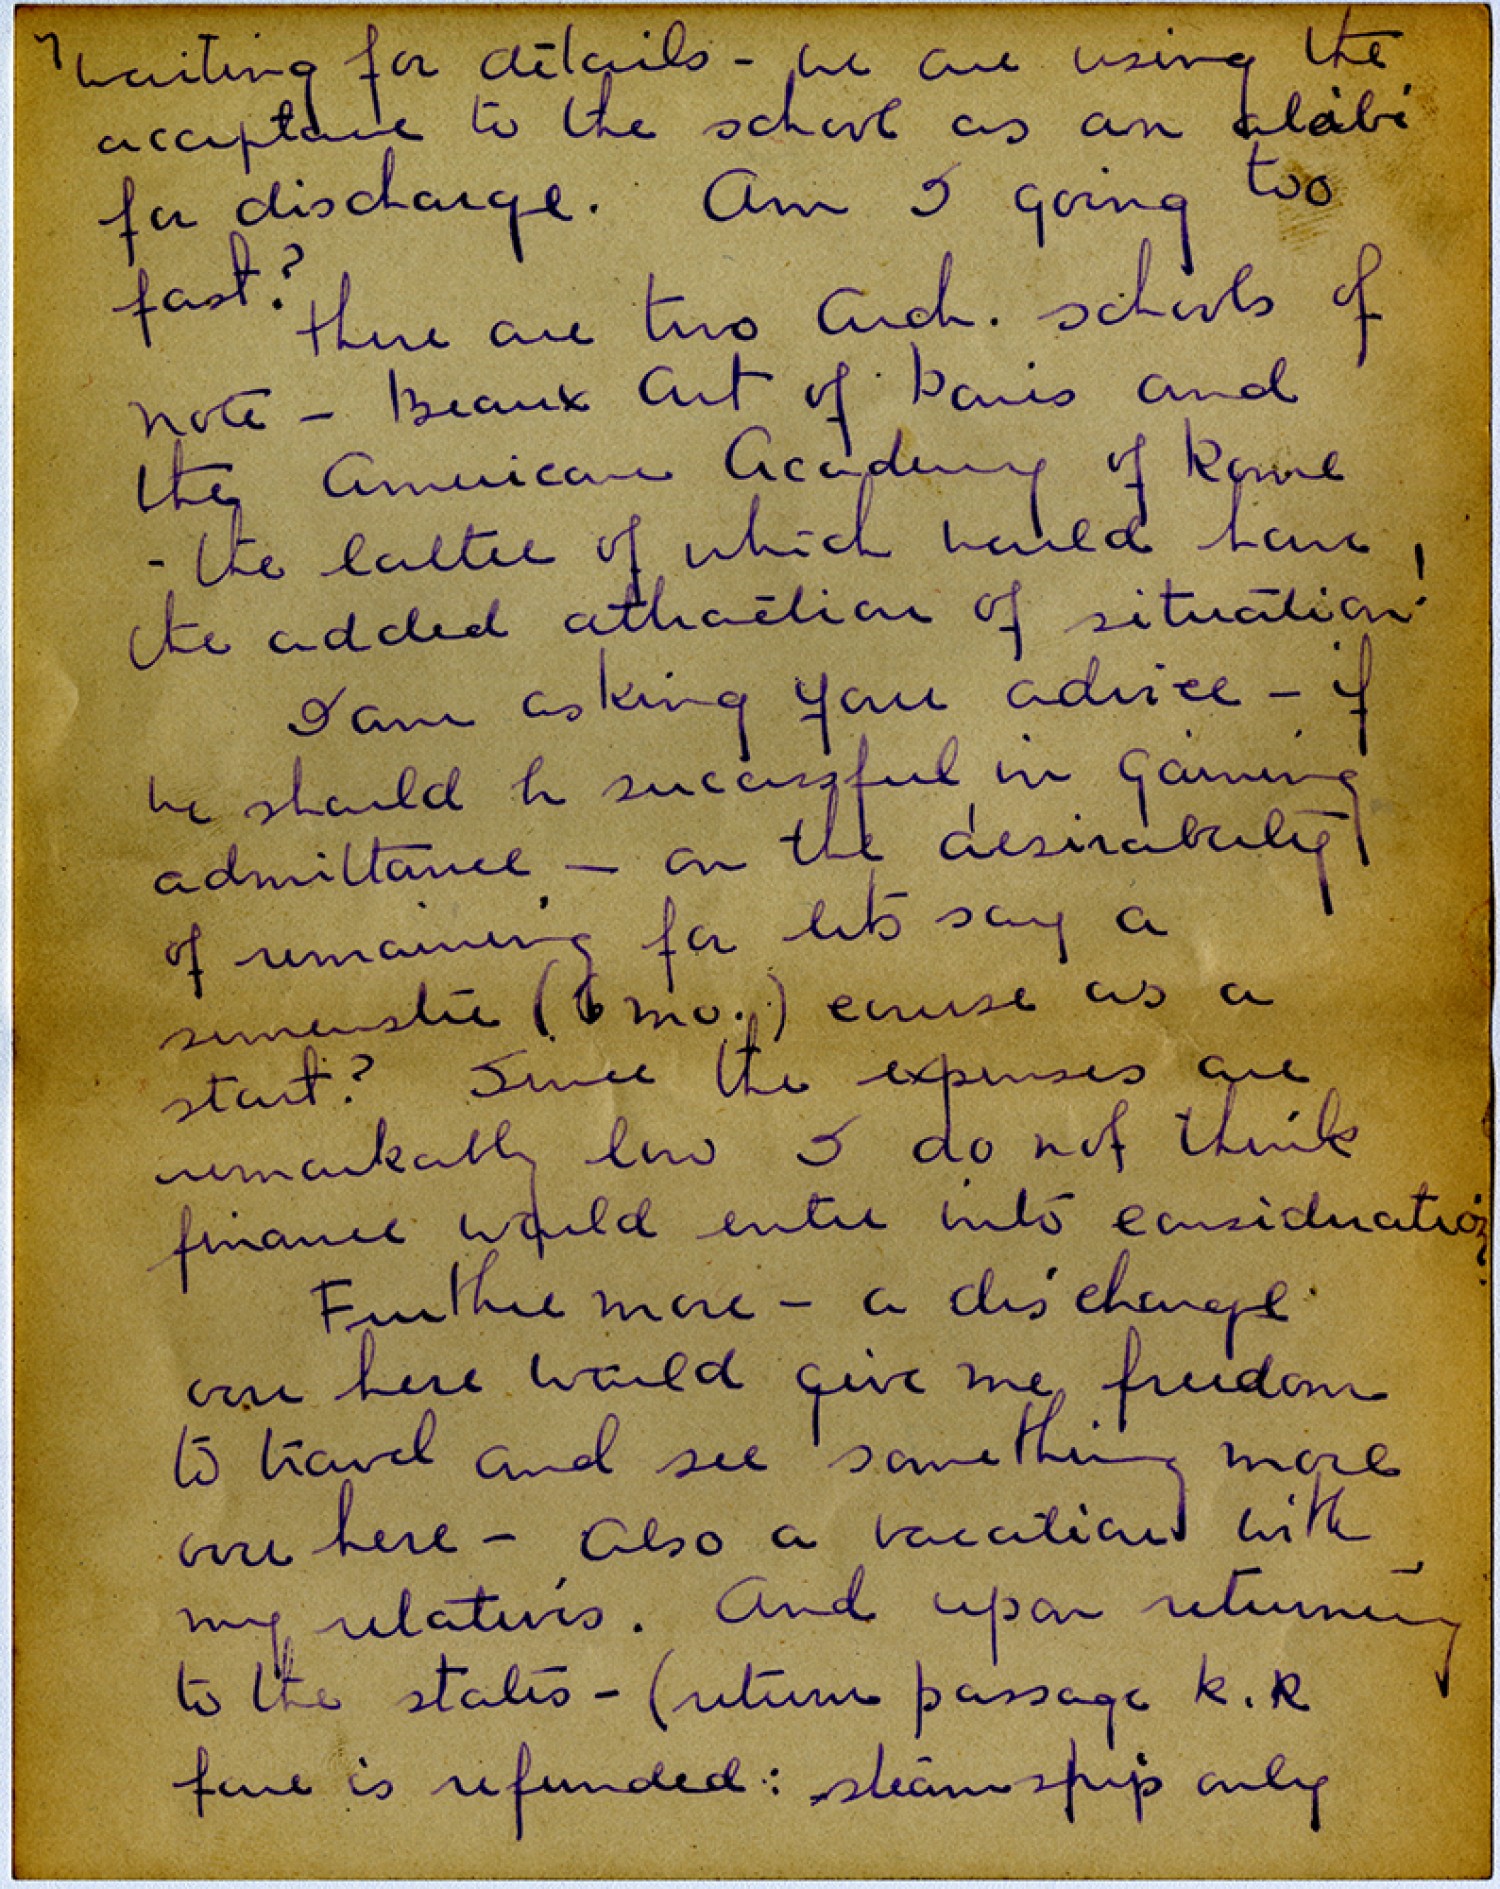 waiting for details - we are using the
acceptance to the school as an alibi
for discharge. Am I going too
fast?
There are two Arch. schools of
note - Beaux Art of Paris and
the American Academy of Rome
- the latter of which would have
the added attraction of situation!
I am asking your advice - if
we should be successful in gaining
admittance - on the desirability
of remaining for lets say a
semenster (6 mo.) course as a
start? Since the expenses are
remarkably low I do not think
finance would enter into consideration.
Furthermore - a discharge
over here would give me freedom
to travel and see something more
over here - also a vacation with
my relatives. And upon returning
to the states - (return passage R.R
fare is refunded: steamship only